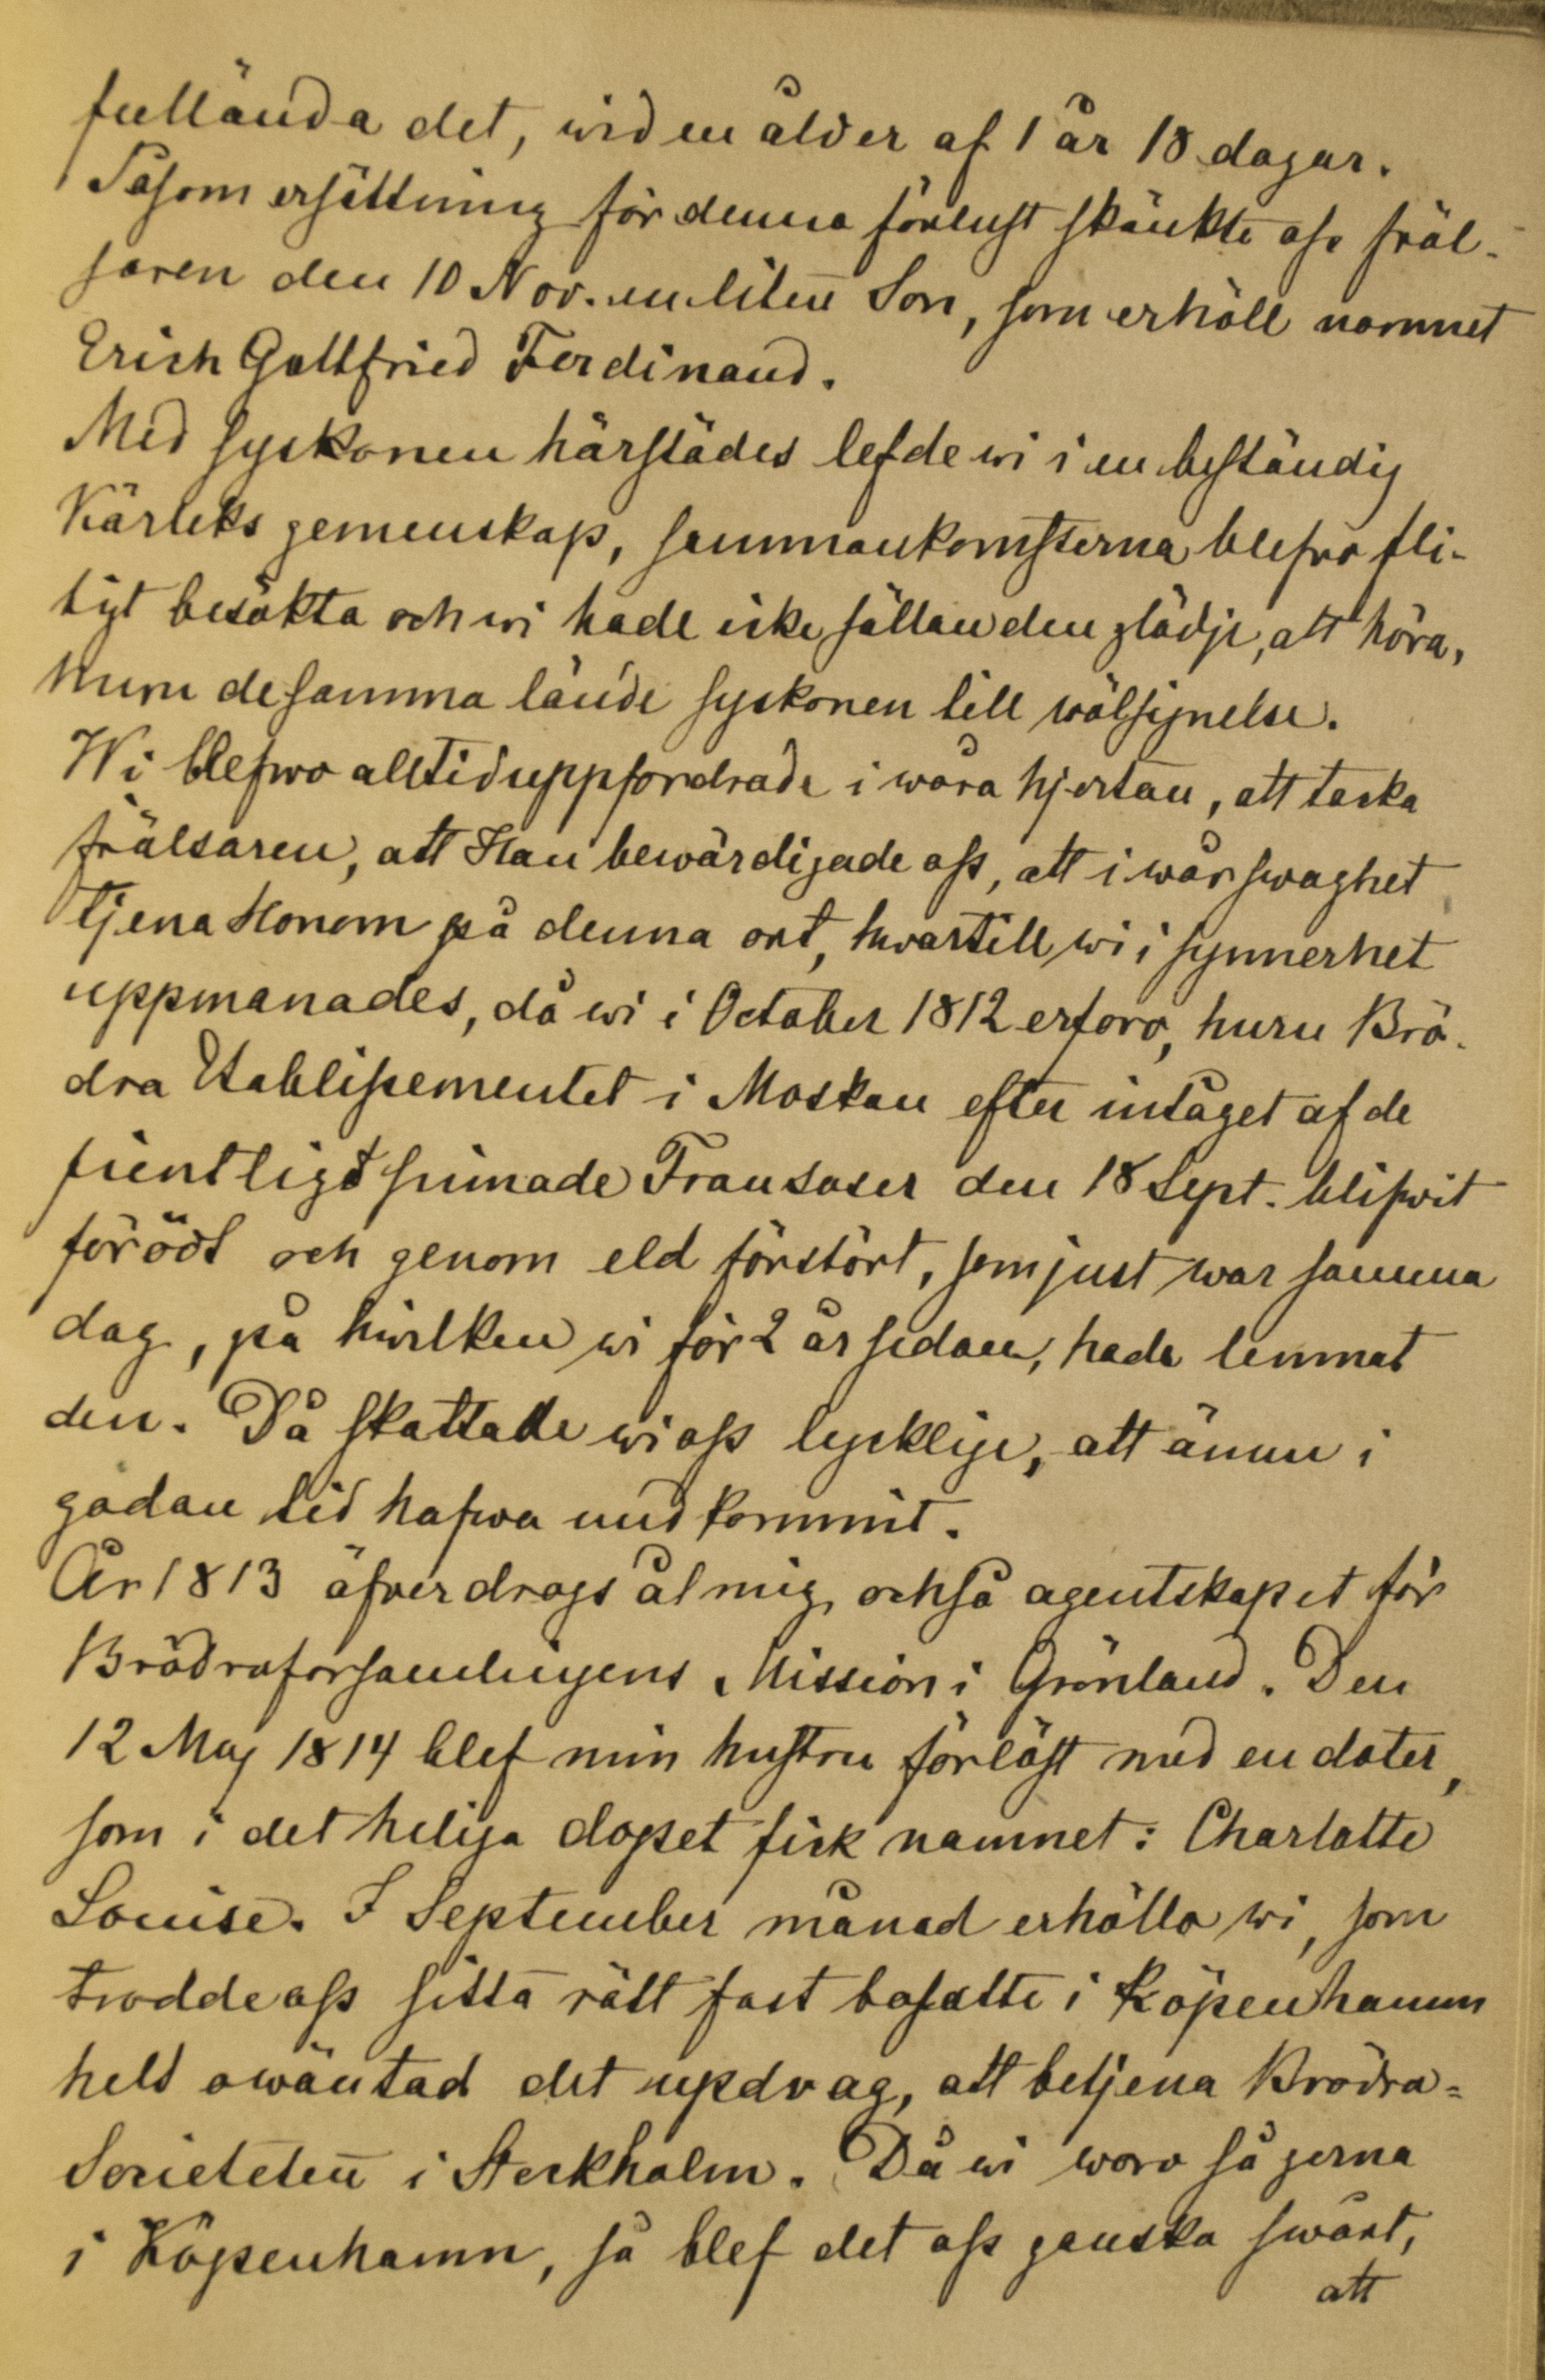 fullända det, wid en ålder af 1 år 18 dagar.
Såsom ersättning för denna förlust skänkte oss fräl-
saren den 10 Nov. en liten Son, som erhöll namnet
Erich Gottfried Ferdinand.
Med syskonen härstädes lefde wi i en beständig
Kärleks gemenskap, sammankomsterna blefwo fli-
tigt besökta och wi hade icke sällan den glädje, att höra,
huru desamma lände syskonen till wälsignelse.
Wi blefwo alltid uppfordrade i wåra hjertan, att tacka
frälsaren, att Han bewärdigade oss, att i wår swaghet
tjena Honom på denna ort, hwartill wi i synnerhet
uppmanades, då wi i October 1812 erforo, huru Brö-
dra Etablissementet i Moskau efter intåget af de
fientligt sinnade Fransoser den 18 Sept. blifwit
förödt och genom eld förstört, som just war samma
dag, på hwilken wi för 2 år sedan, hade lemnat
den. Då skattade wi oss lycklige, att ännu i
godan tid hafwa undkommit.
År 1813 öfwerdrogs åt mig också agentskapet för
Brödraforsamlingens Mission i Grönland. Den
12 Maj 1814 blef min hustru förlöst med en doter,
som i det heliga dopet fick namnet: Charlotte
Louise. I September månad erhöllo wi, som
trodde oss sitta rätt fast bosatte i Köpenhamn
helt owäntad det updrag, att betjena Brödra-
Societeten i Stockholm. Då wi woro så gerna
i Köpenhamn, så blef det oss ganska swårt,
att